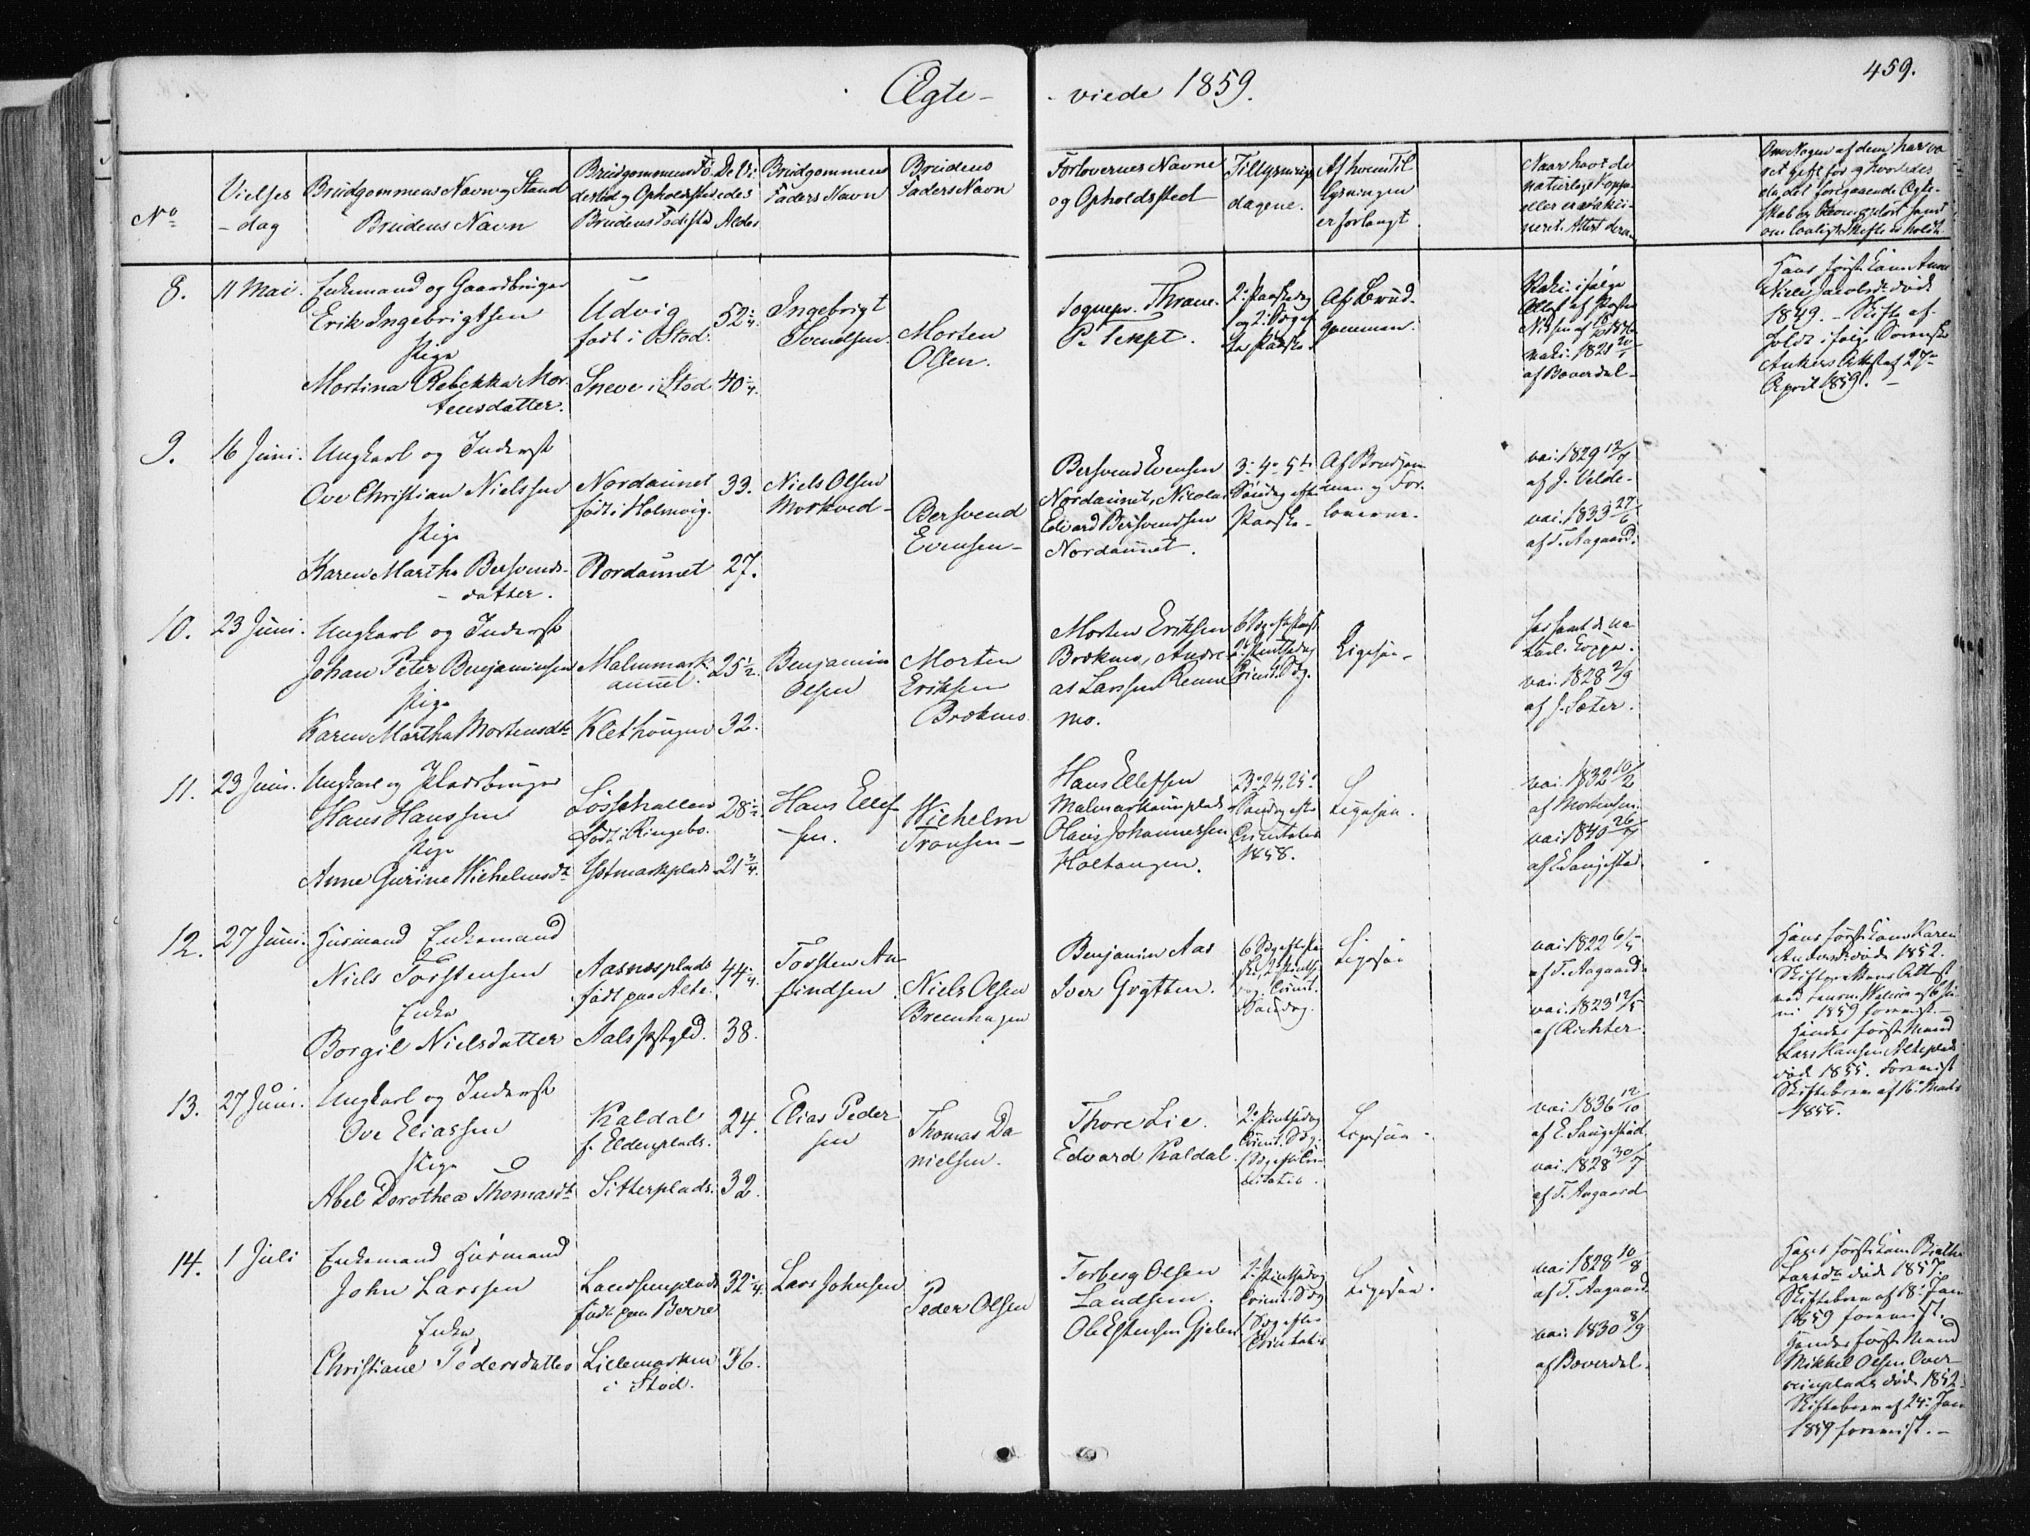 459.
Ægte- - viede 1859.
No
Vielses
- dag
Brudgommens Navn og Stand
Brudens Navn
Brudgommens Fö-
dested og Opholdssted
Brudens Fødested
De Vi-
edes
Alder
Brudgommens
Faders Navn
Brudens
Faders Navn
Forlovernes Navne
og Opholdssted
Tillysnings
dagene.
Af hvem Til
lysningen
er forlangt
Naar havt de
naturlige Kopper
eller er vakci-
neret. Attest derom
Om Nogen af dem har væ
ret gift før og hvorledes
da det foregaaende Ægte-
skab er bleven opløst samt
om lovligt Skifte er holdt
8. 11 Mai.
Enkemand og Gaardbruger
Erik Ingebrigtsen
Pige
Martina Rebekka Mor-
tensdatter.
Udvig
født i Stod.
Sneve i Stod
52 1/4.
40 1/4.
Ingebrigt
Svendsen.
Morten
Olsen.
Sognepr. Thrane.
P. Teppt.
2. Paaskedag
og 2. Søgef-
ter Paaske
Af Brud-
gommen.
1821
af Boverdal-
Hans første Kone Anne
Niels Jacobsdt. døde
1849. - Skifte af-
holdt i følge Sorensk.
Ankers Attest af 27de
April 1859. -
9. 16 Juni.
Ungkarl og Inderst
Ove Christian Nielssen
Pige
Karen Martha Bersvends-
- datter.
Nordaunet
født i Holmvig.
Nordaunet
33.
27.
Niels Olsen
Morkved-
Bersvend
Evensen-
Bersvend Evensen
Nordaunet, Nicolai
Edvard Bersvendsen
Nordaunet.
3- 4- 5te
Søndag efter
Paaske-
Af Brudgom-
men og For-
loverne.
vai. 1829 12/7
af J. Velde-
vai. 1833 27/6
af T. Aagaard.
10. 23 Juni.
Ungkarl og Inderst
Johan Peter Benjaminsen
Pige
Karen Martha Mortensdtr
Malmmark-
aunet.
Klethaugen
25 1/2.
32.
Benjamin
Olsen
Morten
Eriksen
Brekmo.
Morten Eriksen
Brekmo, Andre-
as Larssen Renne
mo.
6 Søgef. Paaske
2. Pintsedag
Trinit. Søg.
Ligesaa-
har havt de na-
turl. Kopper.
vai. 1828 2/9
af J. Sæter.
11. 23 Juni.
Ungkarl og Pladsbruger
Hans Hanssen
Pige
Anne Gurine Wichelmsdtr
Løssehallen
født i Ringebo.
Ystmarkplads
28 1/2
21 3/4.
Hans Ellef-
sen.
Wichelm
Tronsen-
Hans Ellefsen
Malmarkaunplads
Hans Johannessen
Holtangen.
23. 24. 25.
Søndag efter
Trinitatis
1858.
Ligesaa.
vai. 1832 10/2
af Mortensen.
vai 1840 26/7
af E. Langestad.
12. 27 Juni.
Husmand Enkemand
Niels Torstensen
Enke
Borgil Nielsdatter
Aasnesplads
født paa Alte.
Aals Prstgld.
44 1/4.
38.
Torsten Au-
flindsen
Niels Olsen
Breenhagen
Benjamin Aas
Iver Grytten.
6 Søg eft Paa-
ske, 2. Pintse-
dag, Trinit.
Søndag.
Ligesaa
vai. 1822 6/5
af T. Aagaard.
vai. 1823 12/5
af Richter.
Hans første Kone Karen
Andersdt døde 1852.
1859 forevist.-
Hendes første Mand
Lars Hansen Alteplads
død 1855. Forevist
Skiftebrev af 16. Marts
1855.
13. 27 Juni.
Ungkarl og Inderst
Ove Eliassen
Pige
Abel Dorothea Thomasdtr
Kaldal
f. Eldenplads.
Sitterplads.
24.
32.
Elias Peder-
sen
Thomas Da-
nielsen.
Thore Lie.
Edvard Kaldal.
2. Pintsedag
Trinit. Søg.
1 Søg eft Tri-
nitatis.
Ligesaa-
vai. 1836 12/10
af E. Langestad
vai. 1828 30/7
af T. Aagaard
14. 1 Juli
Enkemand Husmand
John Larssen
Enke
Christiane Pedersdatter
Landsemplads
født paa Berre
Lillemarken
i Stod.
32 1/4.
36.
Lars Johnsen
Peder Olsen
Torberg Olsen
Landsem.
Ole Estensen Gjelen
2. Pintsedag
Trinit. Søg
1 Søg efter
Trinitatis
Ligesaa.
vai 1828 10/8
af T. Aagaard
vai. 1830 8/9
af Boverdal.
Hans første Kone Birthe
Larsdtr døde 1857.
Skiftebrev af 18. Jan
1859 forevist.
Hendes første Mand
Mikkel Olsen Over-
veinplads døde 1852.
Skiftebrev af 24. Jan
1859 forevist.-